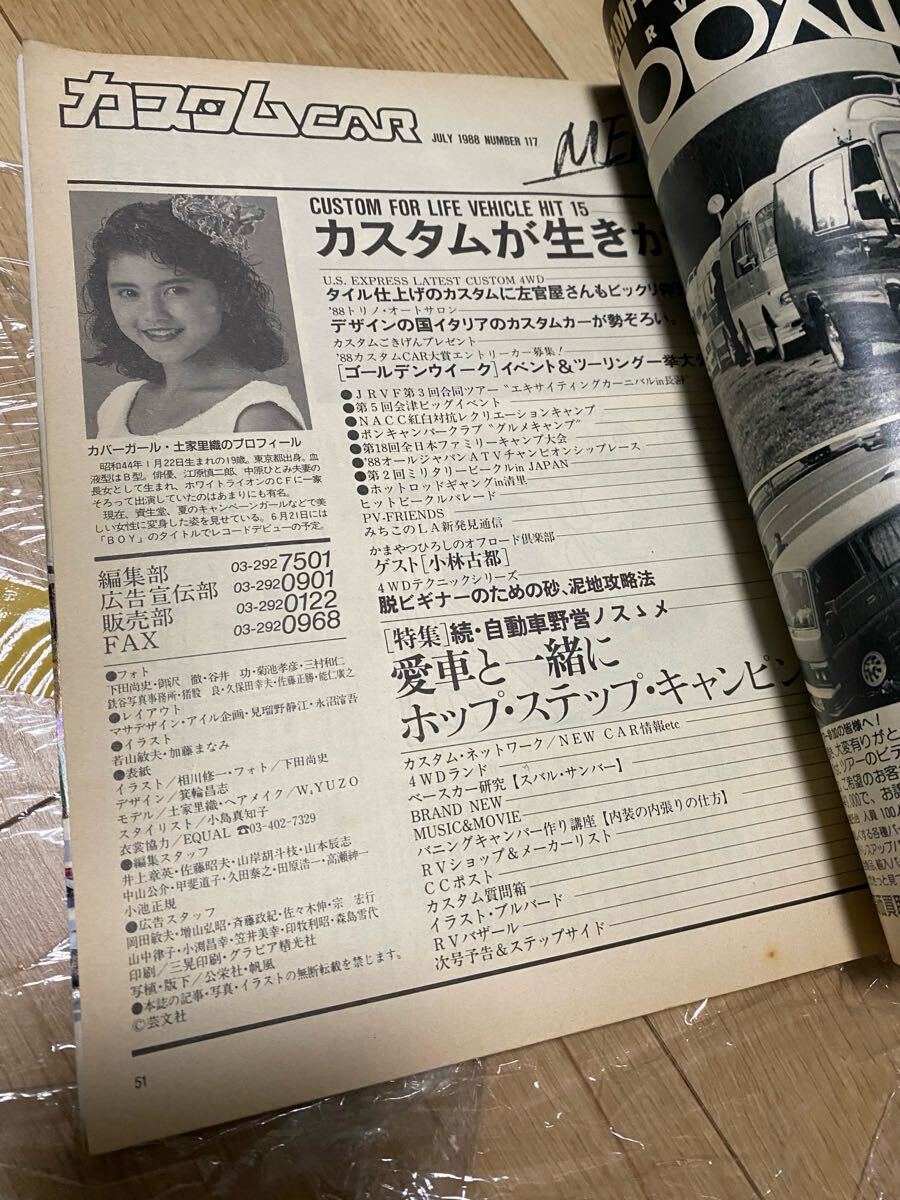 カスタムCAR
JULY 1988 NUMBER 117
CUSTOM FOR LIFE VEHICLE HIT 15
カスタムが生きが
U.S. EXPRESS LATEST CUSTOM 4WD
タイル仕上げのカスタムに左官屋さんもビックリ
'88トリノ・オートサロン
デザインの国イタリアのカスタムカーが勢ぞろい。
カスタムごきげんプレゼント
'88カスタムCAR大賞エントリーカー募集!
[ゴールデンウイーク]イベント&ツーリング一挙大
●JRVF第3回合同ツアー"エキサイティングカーニバルin長
●第5回会津ビッグイベント
●NACC紅白対抗レクリエーションキャンプ
●ボンキャンパークラブ"グルメキャンプ"
●第18回全日本ファミリーキャンプ大会
●'88オールジャパンATVチャンピオンシップレース
●第2回ミリタリービークルin JAPAN
●ホットロッドギャングin清里
ヒットビークルパレード
PV-FRIENDS
みちこのLA新発見通信
かまやつひろしのオフロード倶楽部
ゲスト[小林古都]
4WDテクニックシリーズ
脱ビギナーのための砂、泥地攻略法
[特集]続・自動車野営ノスゝメ
愛車と一緒に
ホップ・ステップ・キャンピン
カスタム・ネットワーク/NEW CAR情報etc
4WDランド
ベースカー研究【スバル・サンバー】
BRAND NEW
MUSIC&MOVIE
バニングキャンパー作り講座【内装の内張りの仕方】
RVショップ&メーカーリスト
CCポスト
カスタム質問箱
イラスト・ブルバード
RVバザール
次号予告&ステップサイド
カバーガール・土家里織のプロフィール
昭和44年1月22日生まれの19歳。東京都出身。血
液型はB型。俳優、江原慎二郎、中原ひとみ夫妻の
長女として生まれ、ホワイトライオンのCFに一家
そろって出演していたのはあまりにも有名。
現在、資生堂、夏のキャンペーンガールなどで美
しい女性に変身した姿を見せている。6月21日には
「BOY」のタイトルでレコードデビューの予定。
編集部 03-292 7501
広告宣伝部 03-292 0901
販売部 03-292 0122
FAX 03-292 0968
●フォト
下田尚史・御沢 徹・谷井 功・菊池孝彦・三村和仁
鉄谷写真事務所・猪股 良・久保田幸夫・佐藤正勝・能仁廣之
●レイアウト
マサデザイン・アイル企画・見瑠野静江・永沼澪吾
●イラスト
若山敏夫・加藤まなみ
●表紙
イラスト/相川修一・フォト/下田尚史
デザイン/箕輪昌志
モデル/土家里織・ヘアメイク/W,YUZO
スタイリスト/小島真知子
衣裳協力/EQUAL ☎03-402-7329
●編集スタッフ
井上章英・佐藤昭夫・山岸胡斗枝・山本辰志
中山公介・甲斐道子・久田泰之・田原浩一・高瀬紳一
小池正規
●広告スタッフ
岡田敏夫・増山弘昭・斉藤政紀・佐々木伸・宗 宏行
山中律子・小渕昌幸・笠井美幸・印牧利昭・森島雪代
印刷/三晃印刷・グラビア精光社
写植・版下/公栄社・帆風
●本誌の記事・写真・イラストの無断転載を禁じます。
©芸文社
51